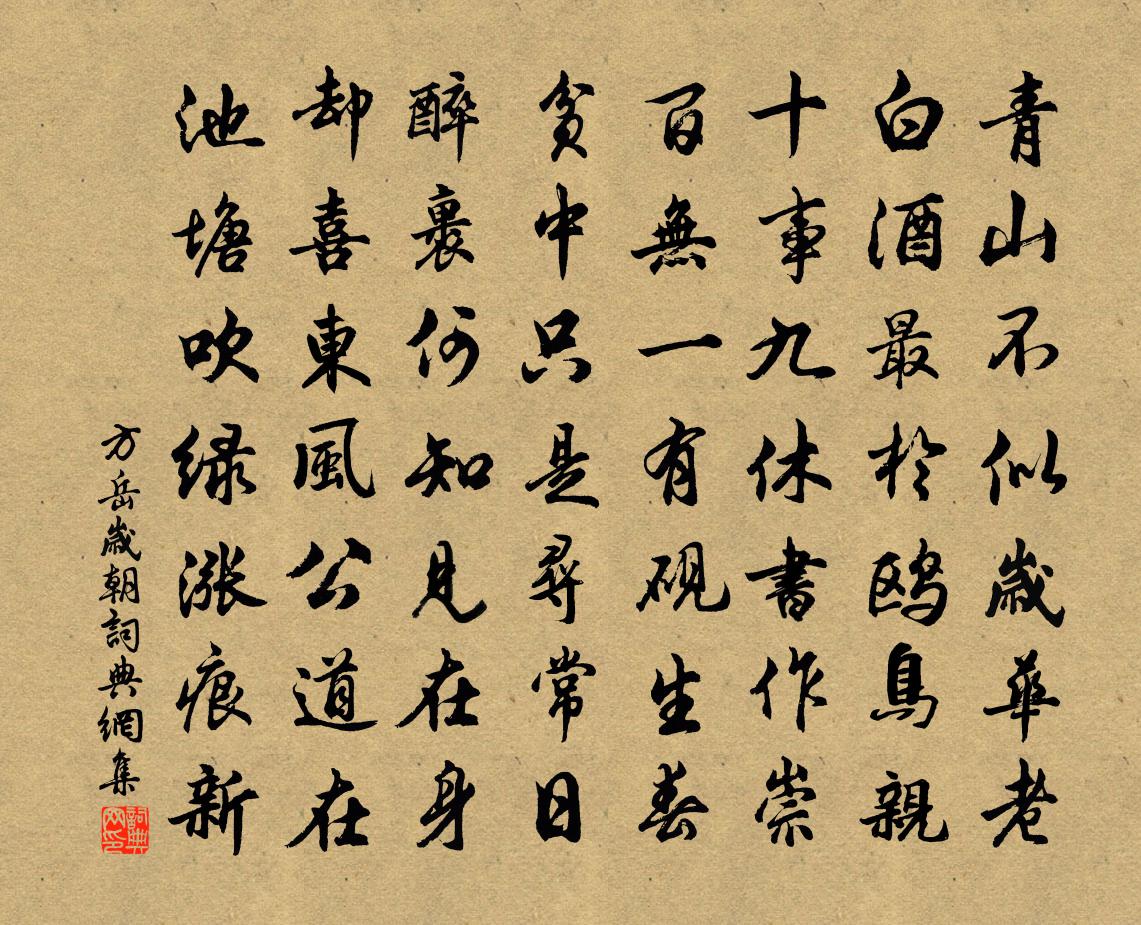 青山不似歲華老
白酒最於鷗鳥親
十事九休書作崇
百無一有硯生春
貧中只是尋常日
醉裏何知見在身
却喜東風公道在
池塘吹綠漲痕新
方岳歲朝詞典網集
詞典網印